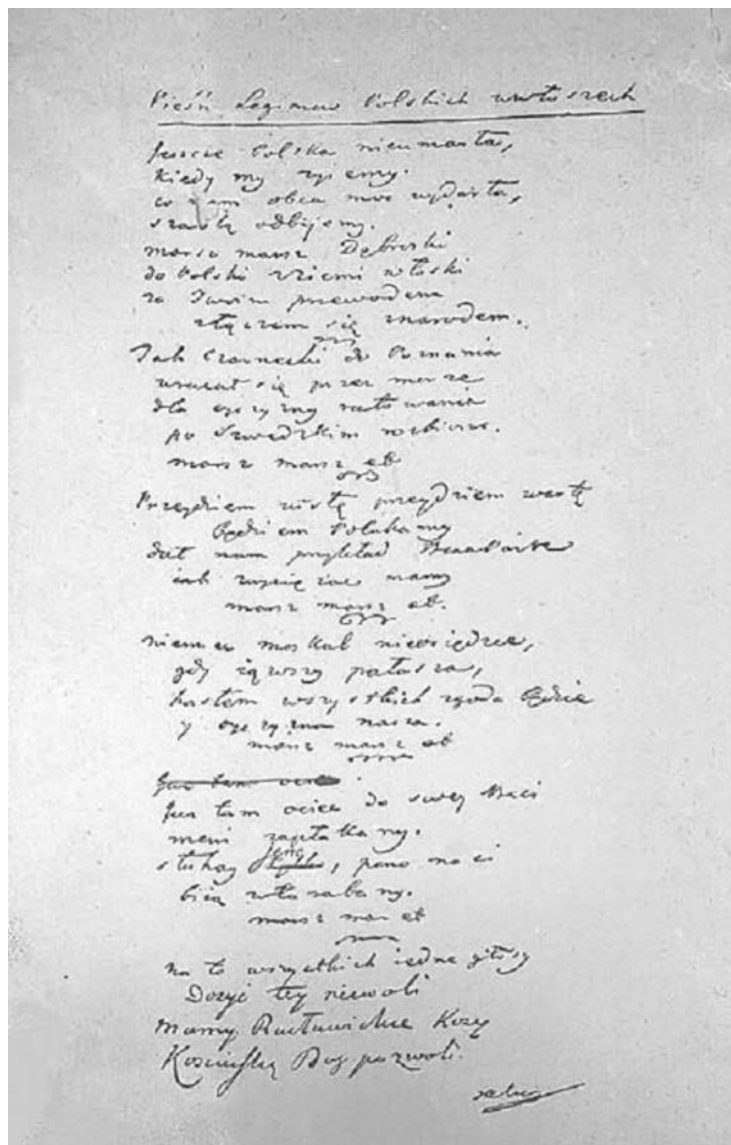 Pieśń Legionow Polskich we Włoszech
Jeszcze Polska nieumarła,
kiedy my żyiemy.
co nam obca moc wydarła,
szablą odbijemy.
marsz marsz Dąbroski
do Polski z ziemi włoski
za Twoim przewodem
złączem się z narodem.
Jak Czarnecki do Poznania
wracał się przez morze
dla oyczyzny ratowania
po Szwedzkim rozbiorze.
marsz marsz et
Przeydziem Wisłę przeydziem Wartę
będziem Polakamy
dał nam przykład Bonaparte
iak zwyciężać mamy
marsz marsz et.
niemiec moskal nieosiędzie,
gdy iąwszy pałasza,
hasłem wszystkich zgoda będzie
y oyczyzna nasza.
marsz marsz et
Już tam
Już tam ociec do swey Basi
mowi zapłakany.
słuchay jeno, pono nasi
biią w tarabany.
marsz mar et
na to wszystkich iedne głosy
Dosyć tey niewoli
mamy Racławickie Kosy
Kosciuszkę Bog pozwoli.